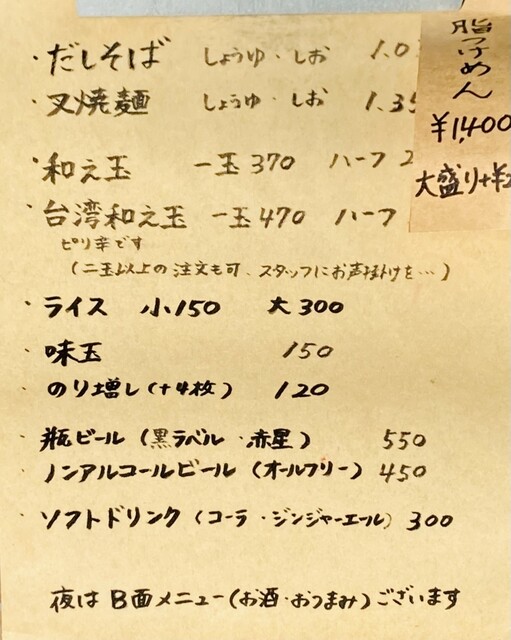 ・だしそば しょうゆ・しお 1.0
・叉焼麺 しょうゆ・しお 1.35
・和え玉 一玉370 ハーフ 2
・台湾和え玉 一玉470 ハーフ
ピリ辛です
(二玉以上の注文も可、スタッフにお声掛けを…)
・ライス 小150 大300
・味玉 150
・のり増し(+4枚) 120
・瓶ビール(黒ラベル・赤星) 550
・ノンアルコールビール(オールフリー) 450
・ソフトドリンク(コーラ・ジンジャーエール) 300
夜はB面メニュー(お酒・おつまみ)ございます
脂つけめん
¥1,400
大盛り+¥2